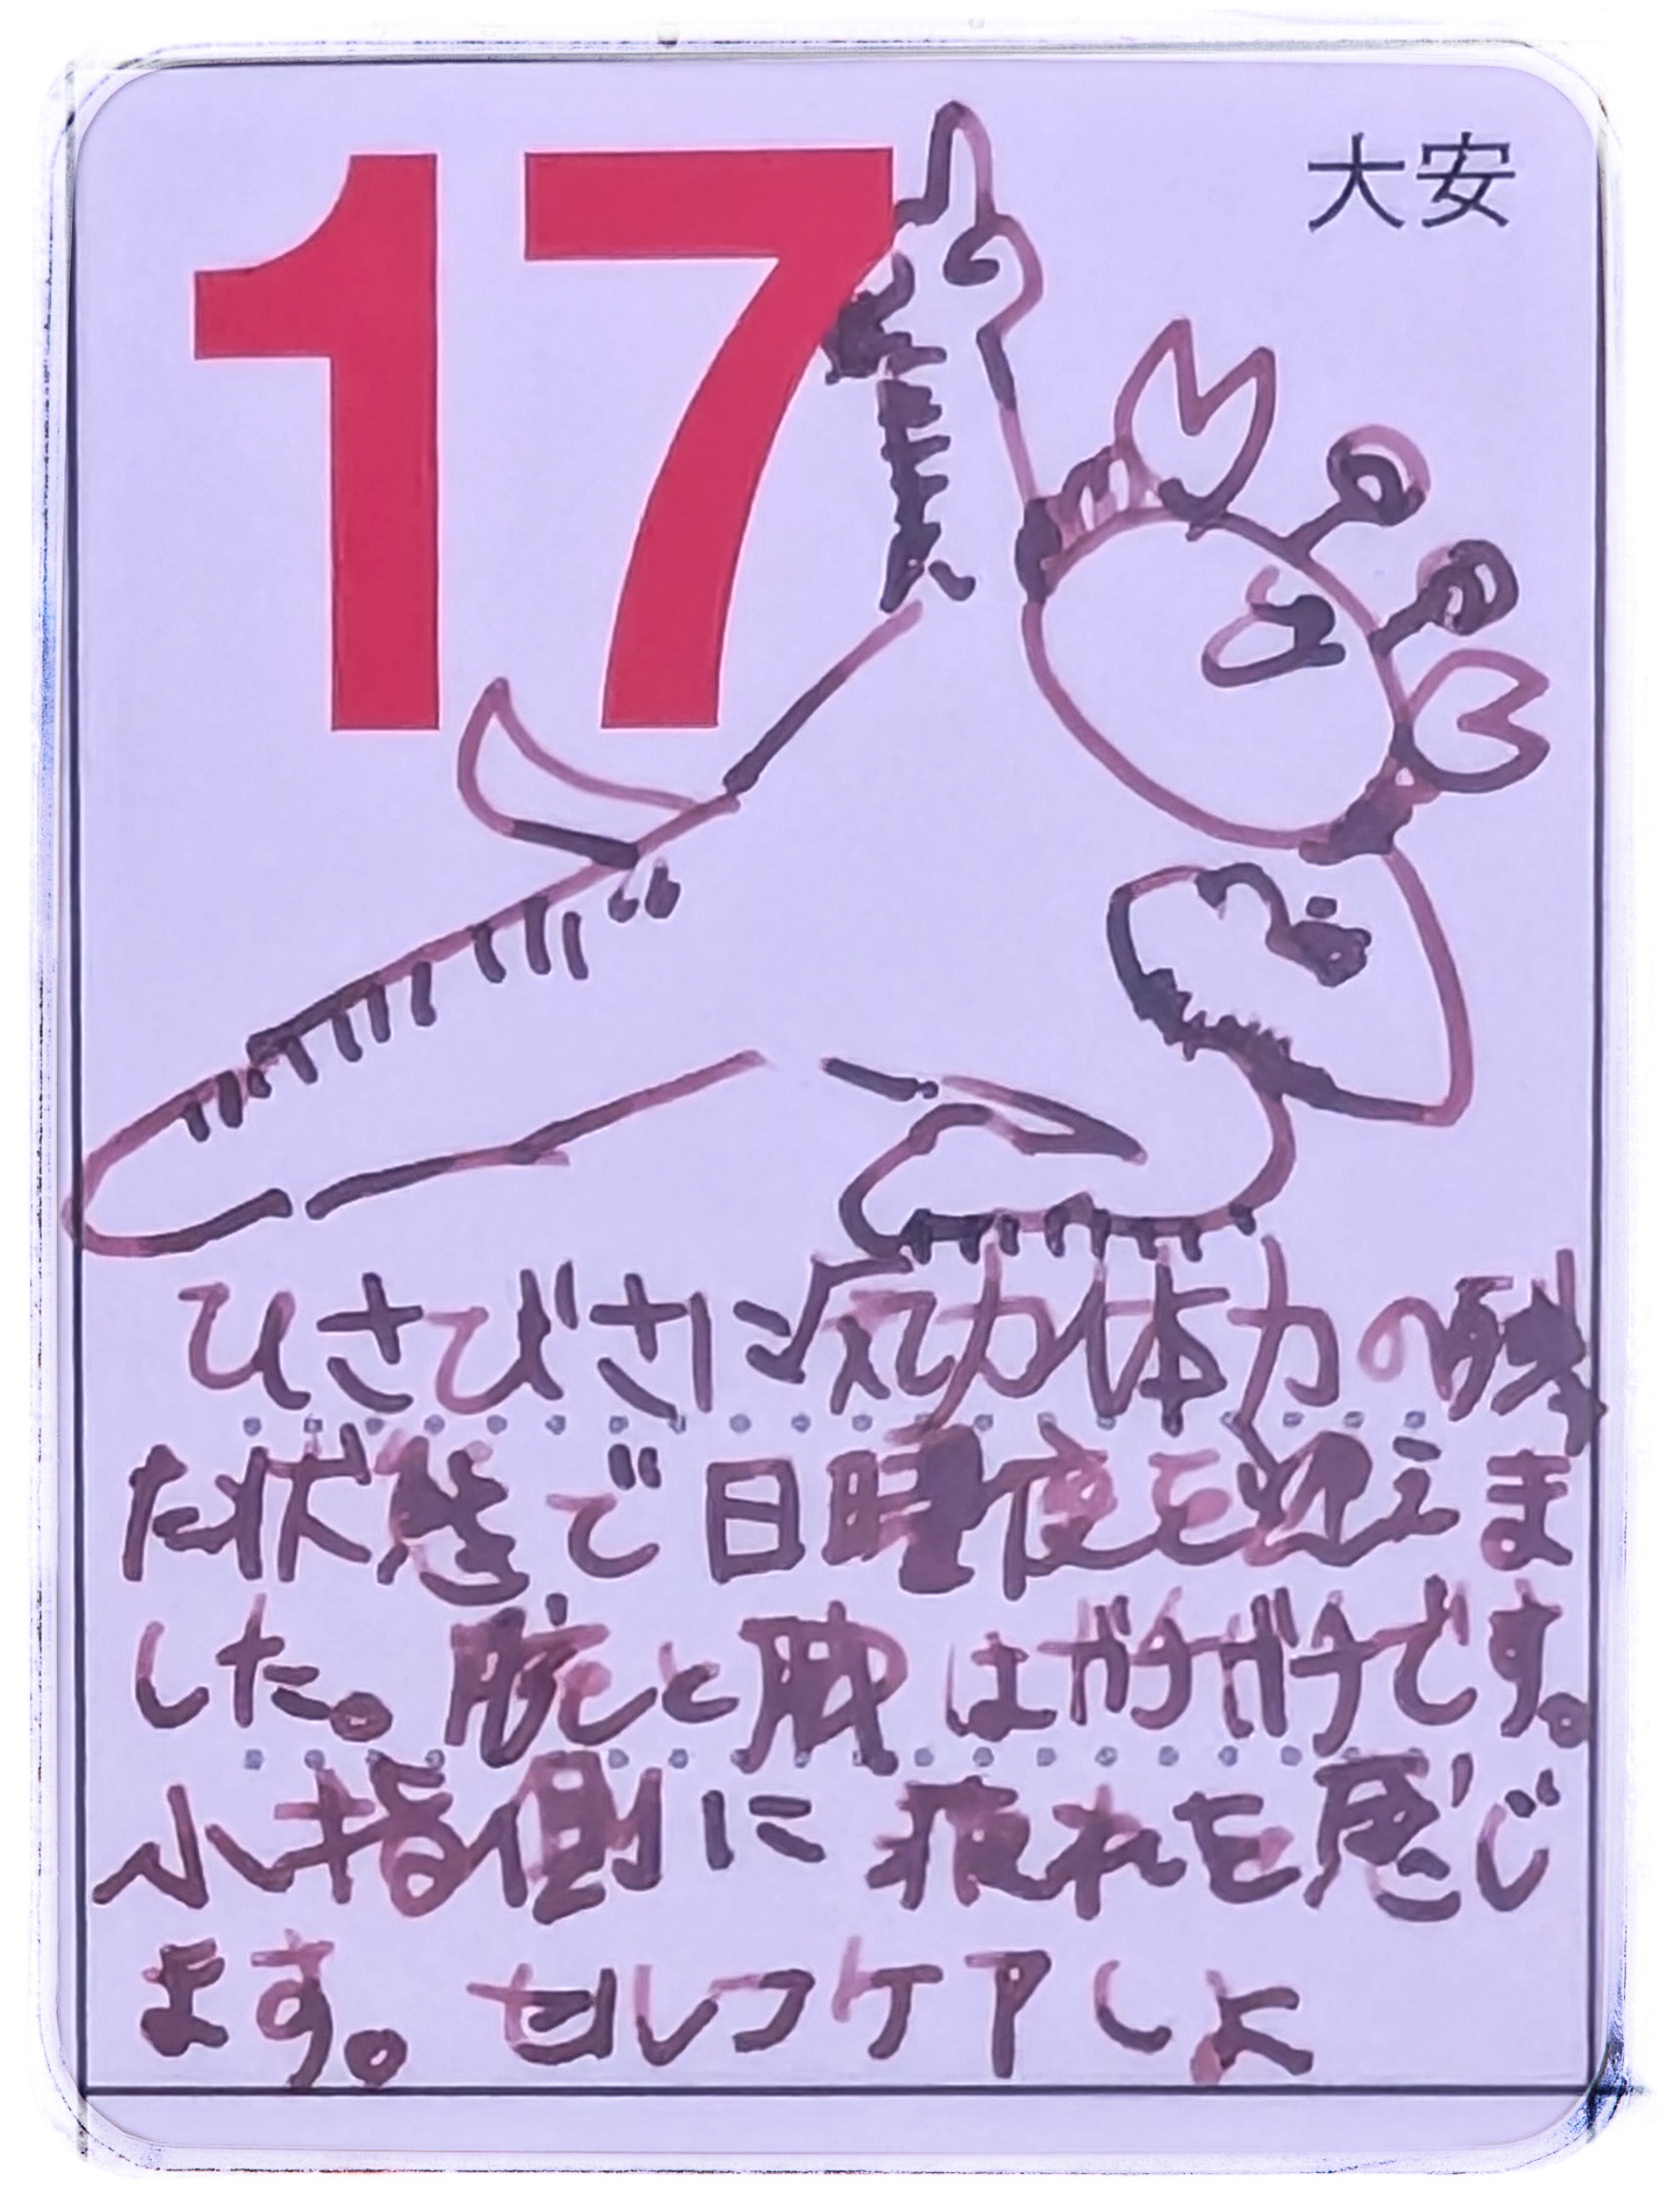 17
大安
ひさびさに気力体力の残
た状態で日曜夜を迎えま
した。腕と はガチガチです。
小指側に疲れを感じ
ます。セルフケアしよ